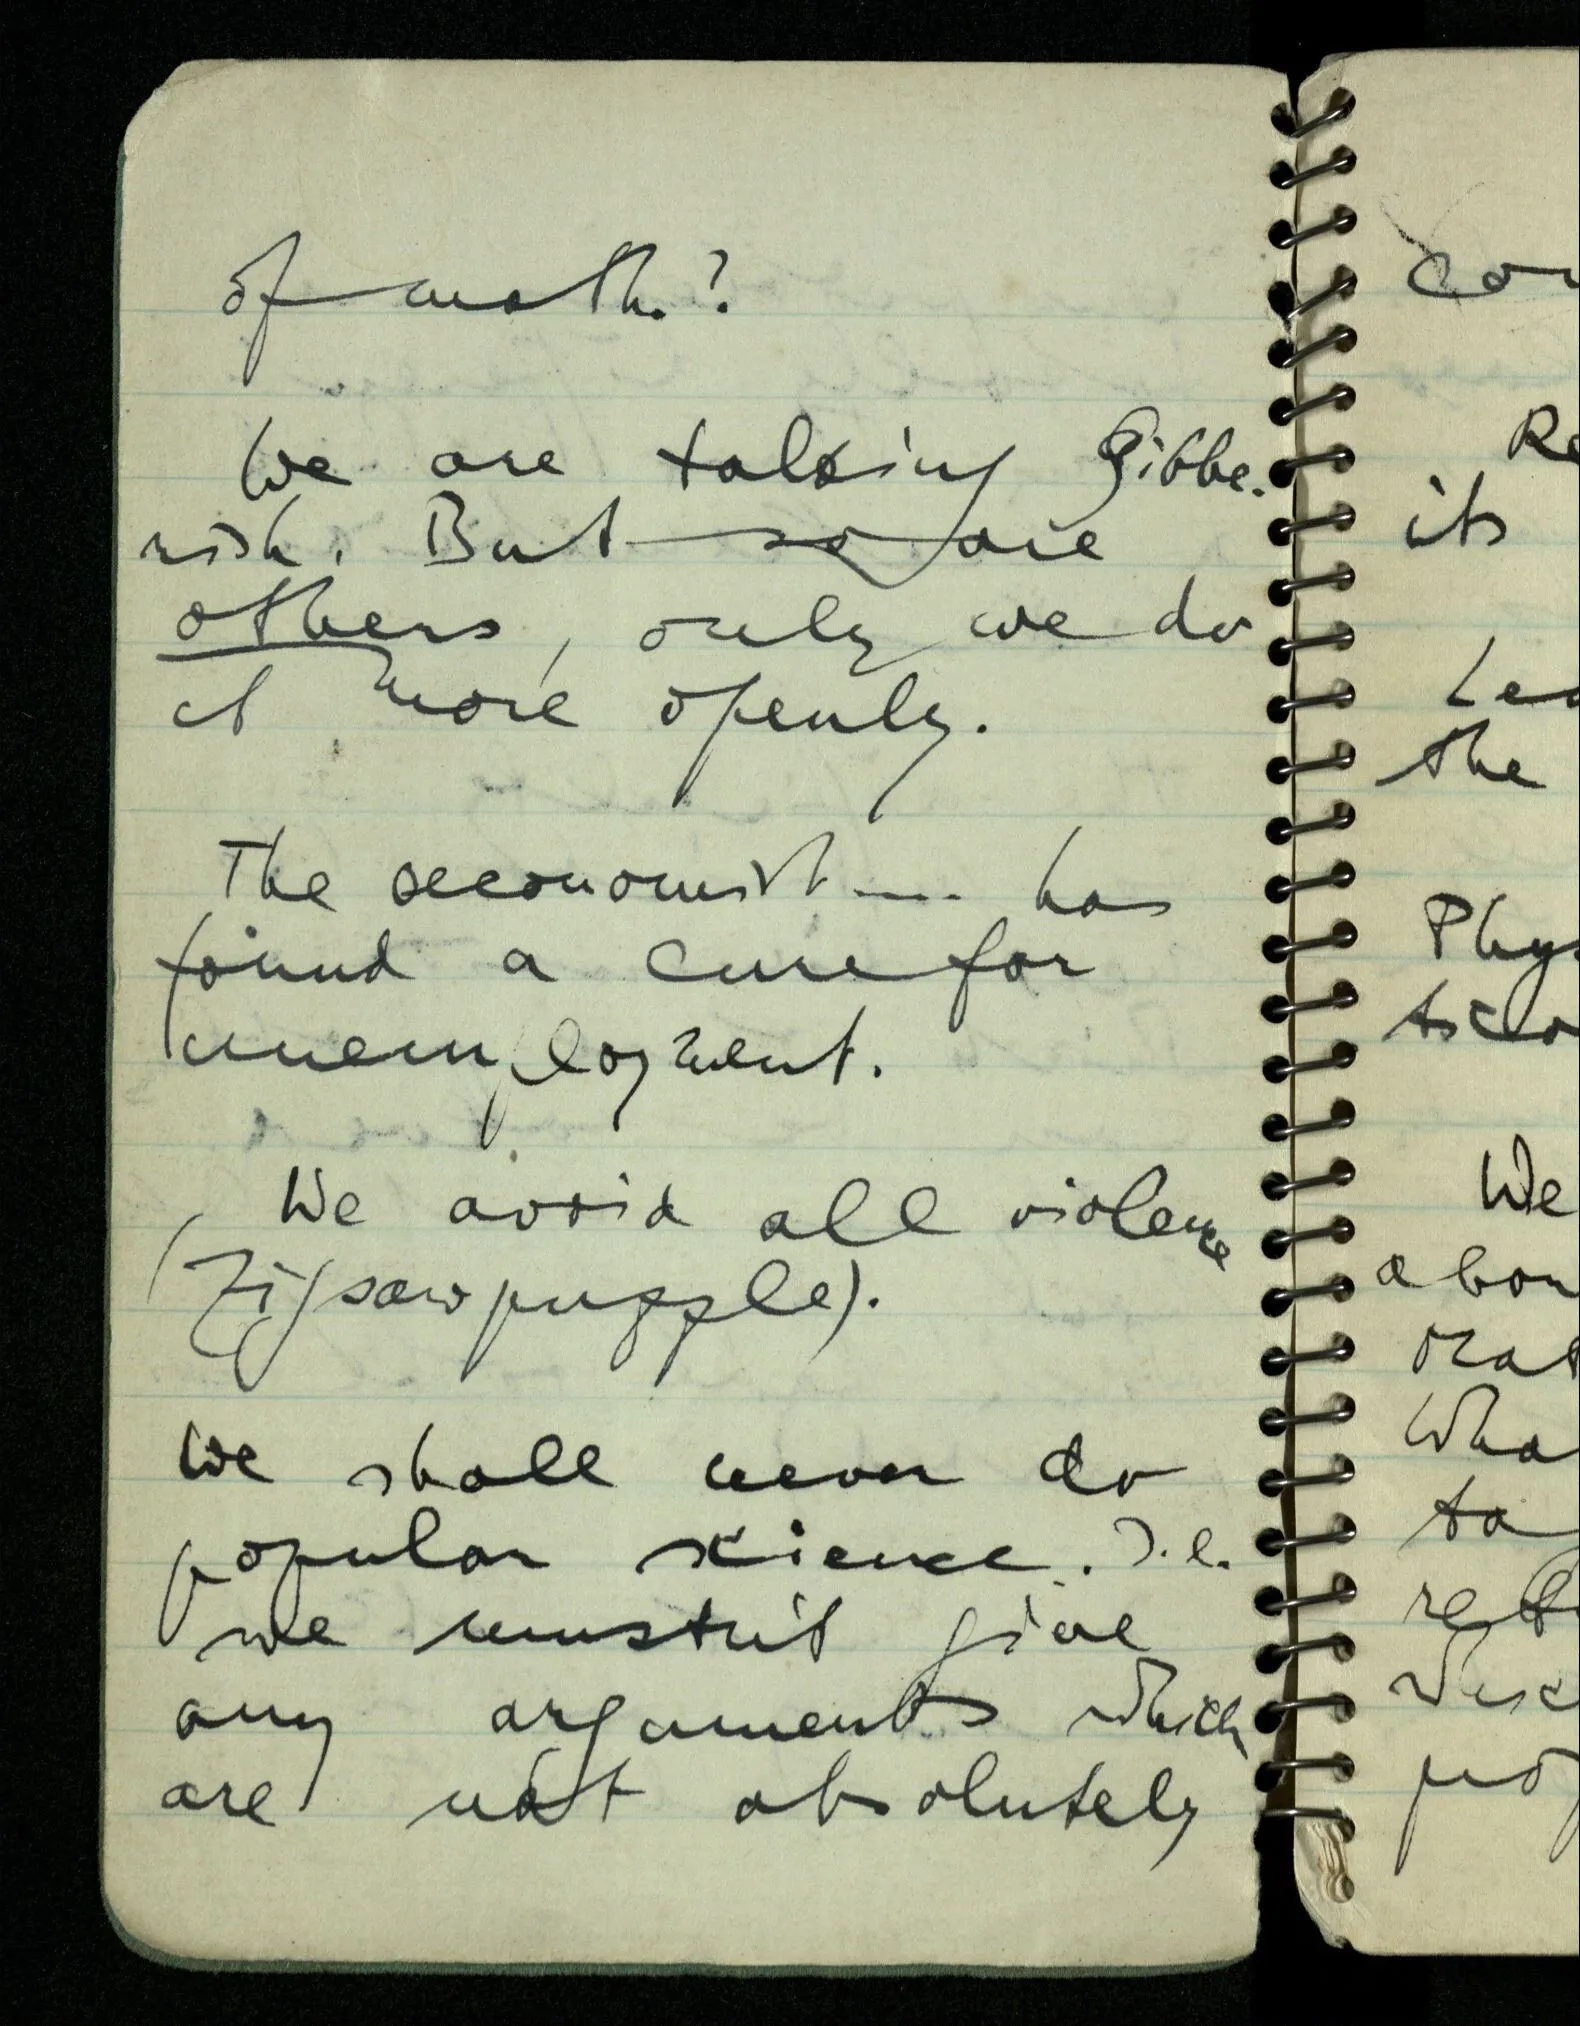 of math.?
We are talking Gibbe-
rish. But so are
others, only we do
it more openly.
The oeconomist .... has
found a cure for
unemployment.
We avoid all violence
(Zigsawpuzzle).
We shall never do
popular science. I.e.
we mustn't give
any arguments which
are not absolutely
Con
Re
its
Lea
the
Phys
We
abou
Wha
to